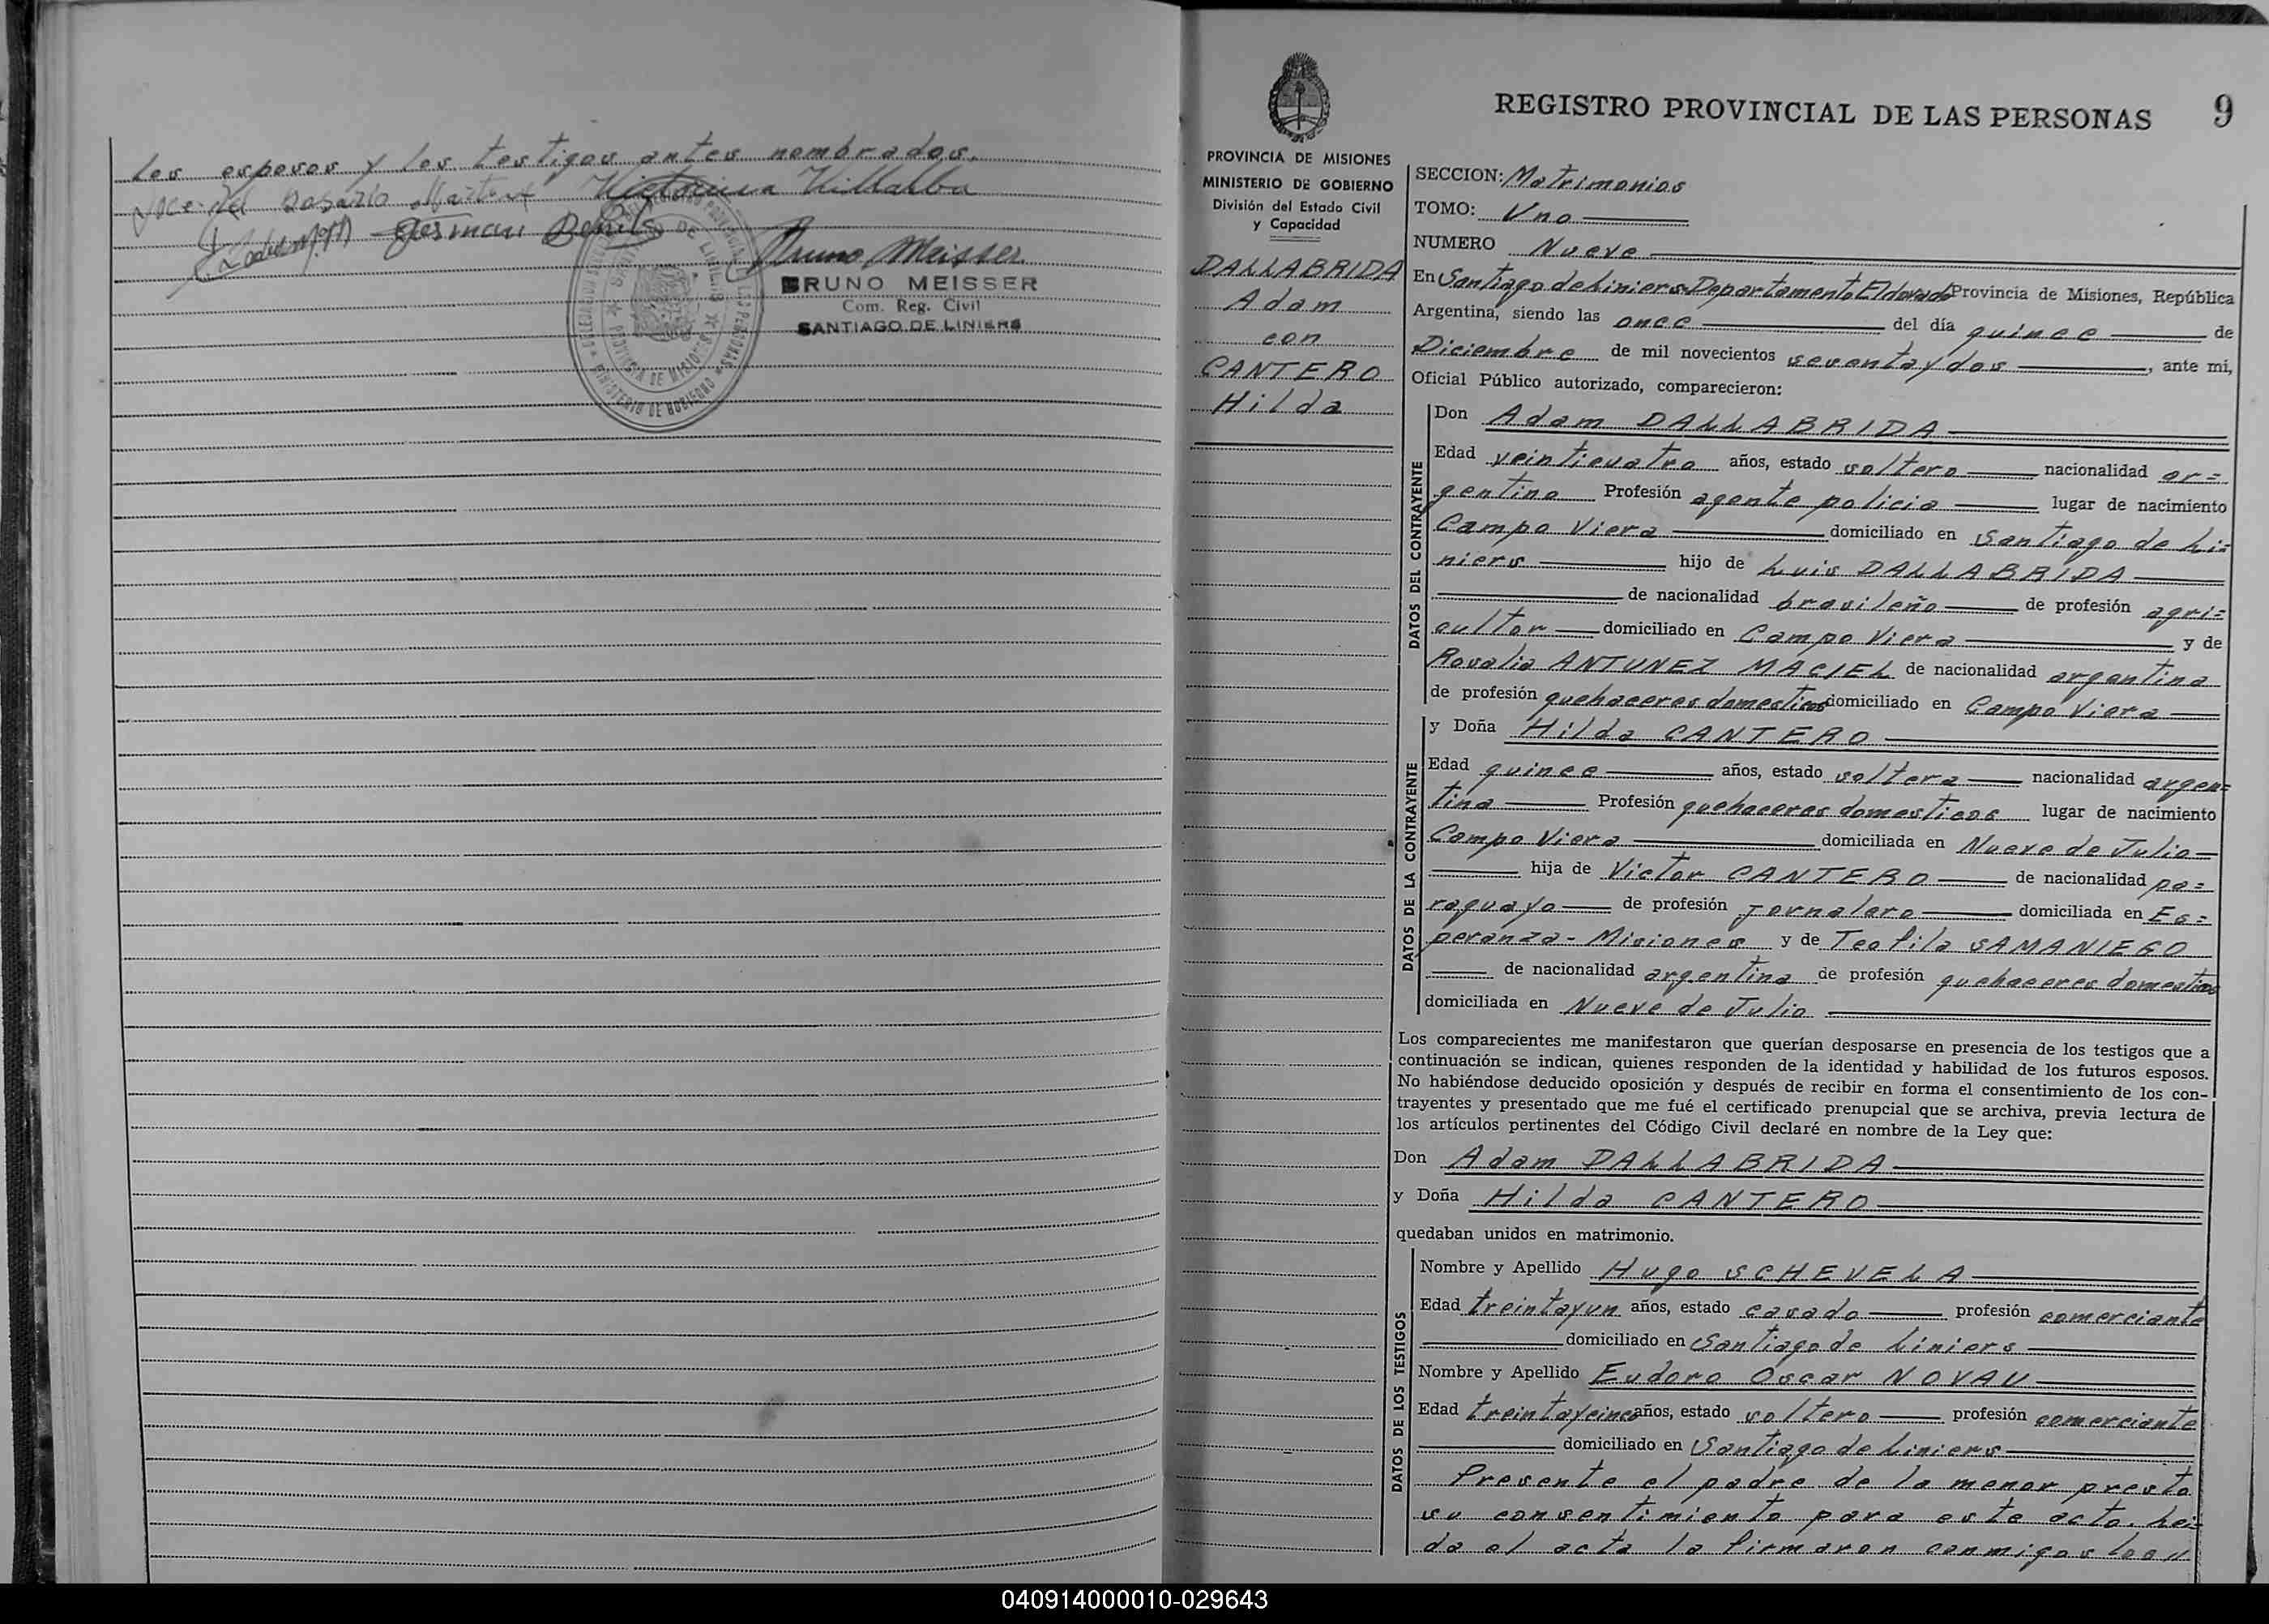 los esposos y los testigos antes nombrados.
Victorina Villalba
German
Bruno Meisser
BRUNO MEISSER
Com. Reg. Civil
SANTIAGO DE LINIERS
PROVINCIA DE MISIONES
MINISTERIO DE GOBIERNO
División del Estado Civil
y Capacidad
DALLABRIDA
Adam
con
CANTERO
Hilda
REGISTRO PROVINCIAL DE LAS PERSONAS 9
SECCION: Matrimonios
TOMO: Uno
NUMERO Nueve
En Santiago de Liniers Departamento Eldorado Provincia de Misiones, República
Argentina, siendo las once del día quince de
Diciembre de mil novecientos setenta y dos, ante mi,
Oficial Público autorizado, comparecieron:
DATOS DEL CONTRAYENTE
Don Adam DALLABRIDA
Edad veinticuatro años, estado soltero nacionalidad ar=
gentino Profesión agente policia lugar de nacimiento
Campo Viera domiciliado en Santiago de Li=
niers hijo de Luis DALLABRIDA
de nacionalidad brasileño de profesión agri=
cultor domiciliado en Campo Viera y de
Rosalia ANTUNEZ MACIEL de nacionalidad argentina
de profesión quehaceres domesticos domiciliado en Campo Viera
DATOS DE LA CONTRAYENTE
y Doña Hilda CANTERO
Edad quince años, estado soltera nacionalidad argen=
tina Profesión quehaceres domesticos lugar de nacimiento
Campo Viera domiciliada en Nueve de Julio
hija de Victor CANTERO de nacionalidad pa=
raguayo de profesión jornalero domiciliada en Es=
peranza - Misiones y de Teofila SAMANIEGO
de nacionalidad argentina de profesión quehaceres domesticos
domiciliada en Nueve de Julio
Los comparecientes me manifestaron que querían desposarse en presencia de los testigos que a
continuación se indican, quienes responden de la identidad y habilidad de los futuros esposos.
No habiéndose deducido oposición y después de recibir en forma el consentimiento de los con-
trayentes y presentado que me fué el certificado prenupcial que se archiva, previa lectura de
los artículos pertinentes del Código Civil declaré en nombre de la Ley que:
Don Adam DALLABRIDA
y Doña Hilda CANTERO
quedaban unidos en matrimonio.
DATOS DE LOS TESTIGOS
Nombre y Apellido Hugo SCHEVELA
Edad treintayun años, estado casado profesión comerciante
domiciliado en Santiago de Liniers
Nombre y Apellido Eudoro Oscar NOVAU
Edad treintaycinco años, estado soltero profesión comerciante
domiciliado en Santiago de Liniers
Presente el padre de la menor presta
su consentimiento para este acto. Lei=
da el acta la firmaron conmigo los //
040914000010-029643